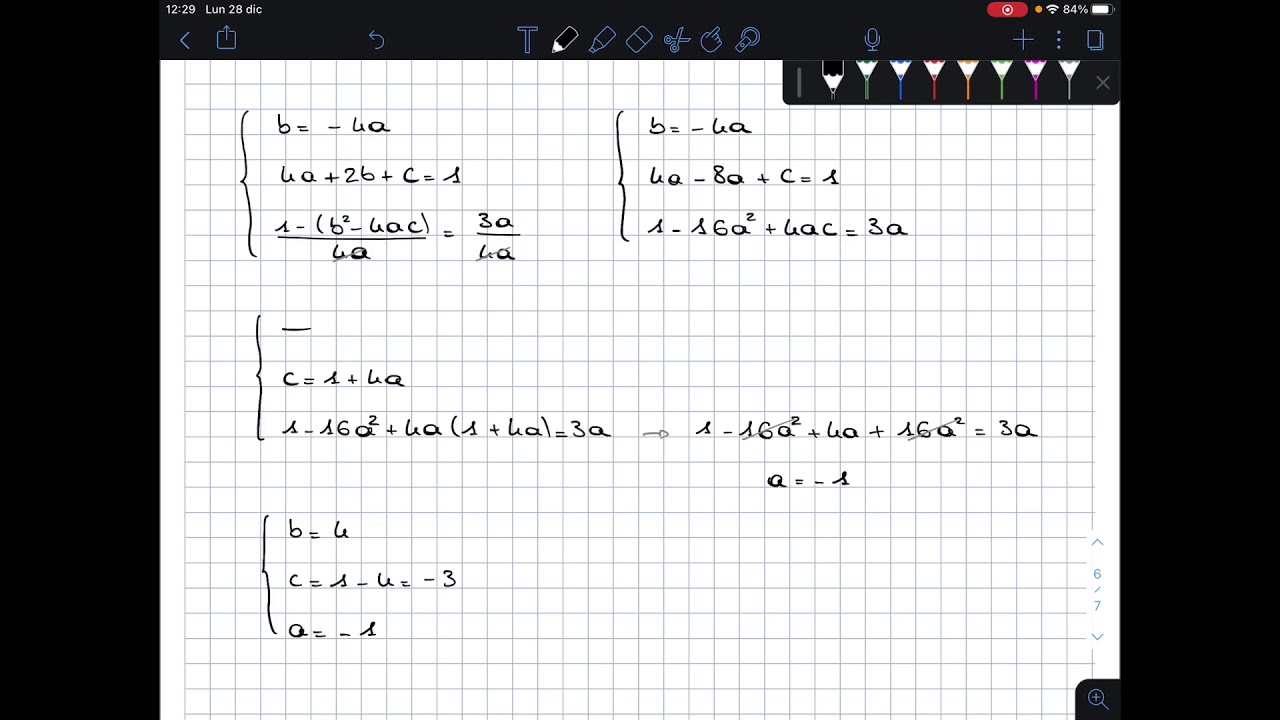 12:29 Lun 28 dic 84%
b = - 4a
4a + 2b + c = 1
1 - (b² - 4ac) / 4a = 3a / 4a
b = - 4a
4a - 8a + c = 1
1 - 16a² + 4ac = 3a
—
c = 1 + 4a
1 - 16a² + 4a (1 + 4a) = 3a → 1 - 16a² + 4a + 16a² = 3a
a = - 1
b = 4
c = 1 - 4 = - 3
a = - 1
6
/
7